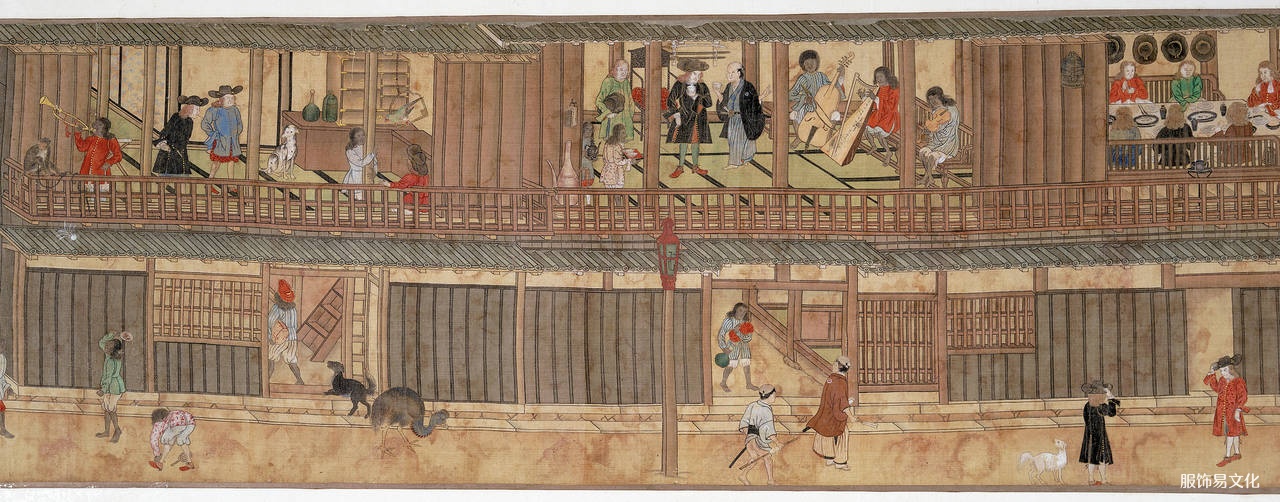 服饰易文化